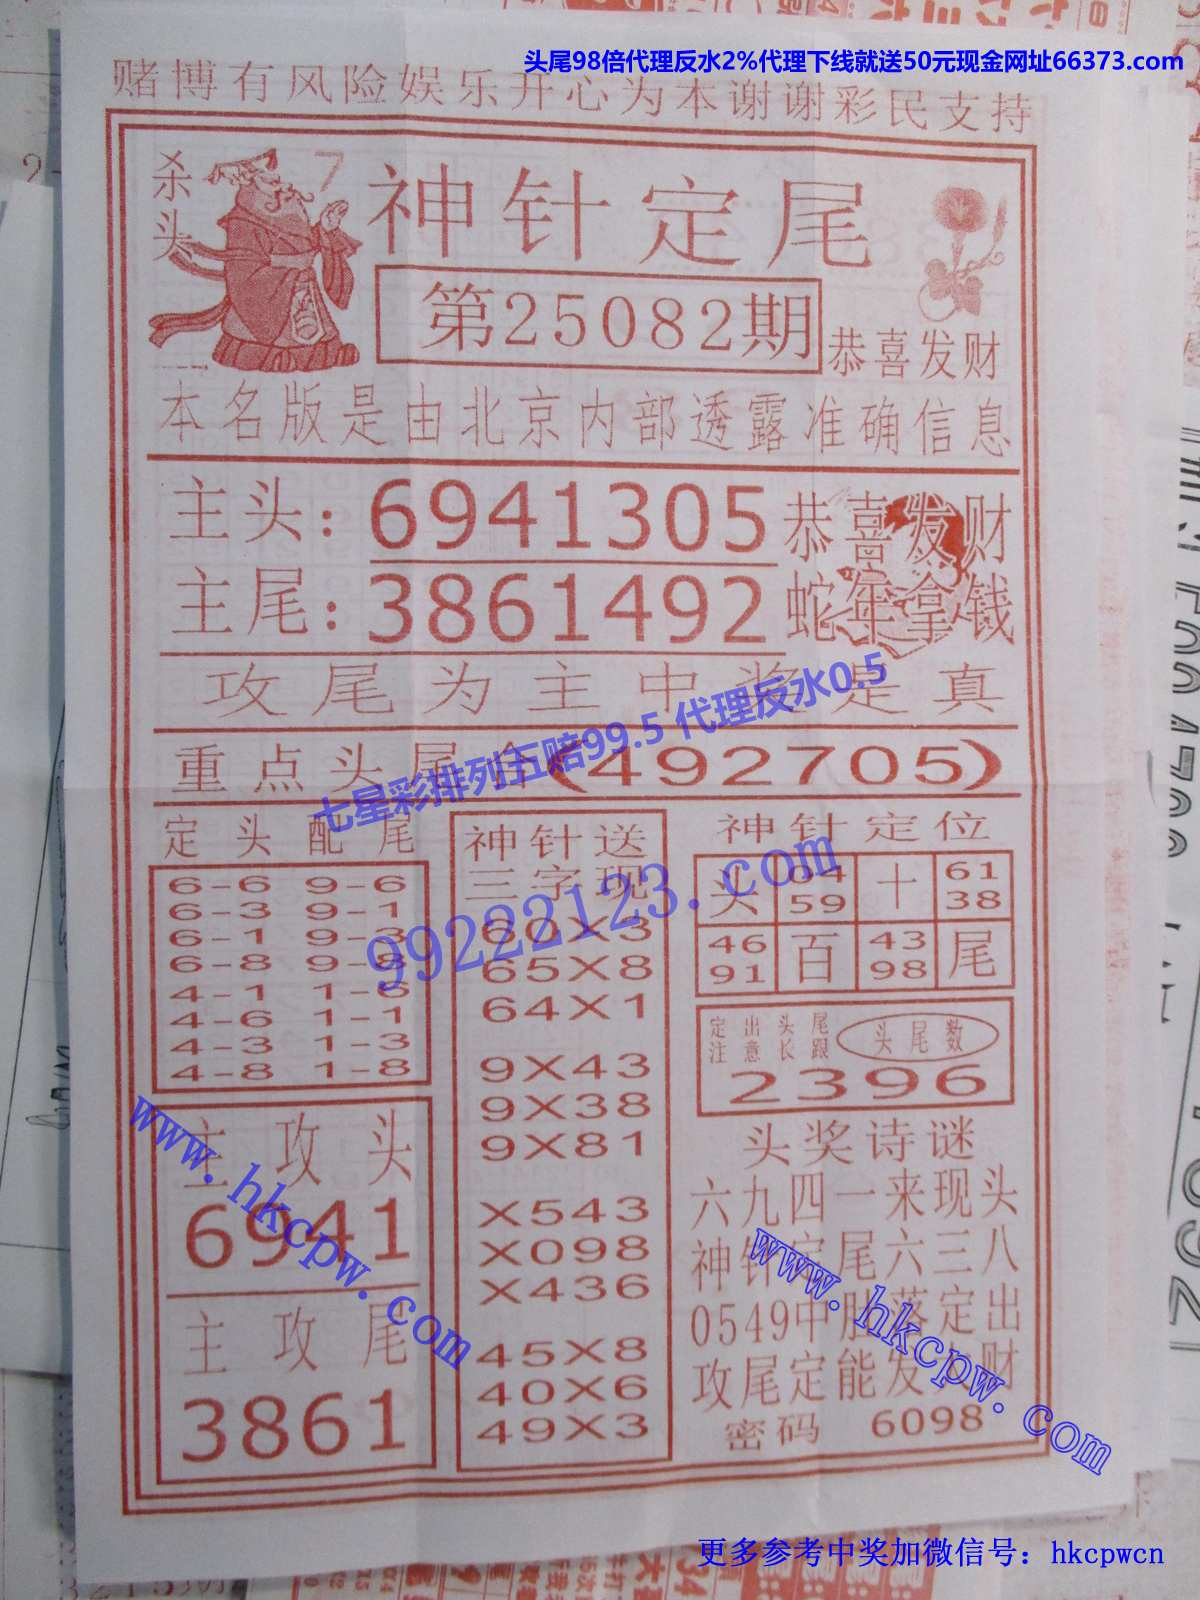 头尾98倍代理反水2%代理下线就送50元现金网址66373.com
赌博有风险娱乐开心为本谢谢彩民支持
杀头
7
神针定尾
第25082期
恭喜发财
本名版是由北京内部透露准确信息
主头:6941305
恭喜发财
主尾:3861492
蛇年拿钱
攻尾为主中奖是真
重点头尾合(492705)
七星彩排列五赔99.5 代理反水0.5
99222123.com
定头配尾
6-6 9-6
6-3 9-1
6-1 9-3
6-8 9-8
4-1 1-6
4-6 1-1
4-3 1-3
4-8 1-8
主攻头
6941
主攻尾
3861
神针送
三字现
60X3
65X8
64X1
9X43
9X38
9X81
X543
X098
X436
45X8
40X6
49X3
神针定位
头 04 十 61
59 38
46 百 43 尾
91 98
定出头尾
注意长跟
头尾数
2396
头奖诗谜
六九四一来现头
神针定尾六三八
0549中肚落定出
攻尾定能发大财
密码 6098
www.hkcpw.com
www.hkcpw.com
更多参考中奖加微信号：hkcpwcn